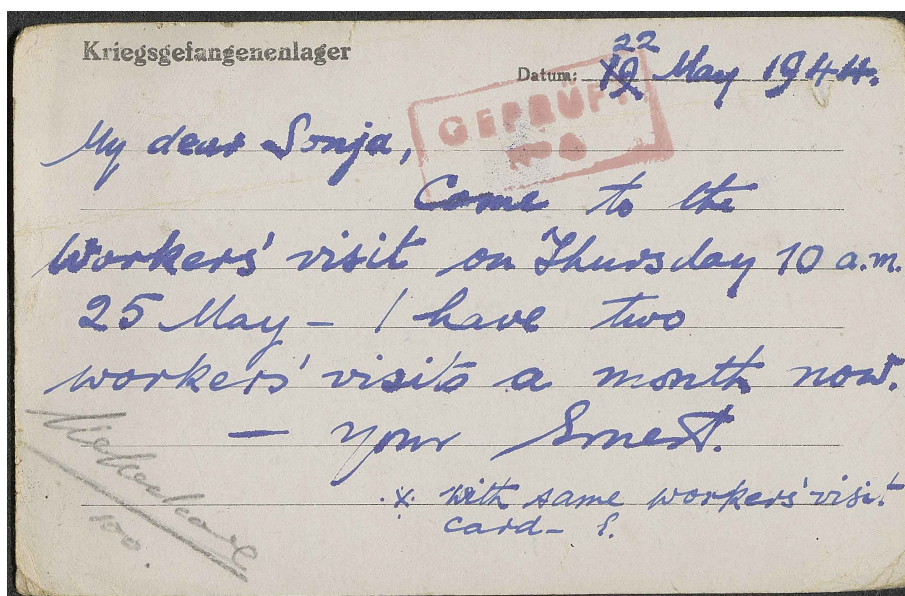 Kriegsgefangenenlager
Datum: 22 May 1944.
GEPRÜFT
My dear Sonja,
Come to the
workers' visit on Thursday 10 a.m.
25 May – I have two
workers' visits a month now.
– your Ernest.
x with same workers' visit
card – E.
100.